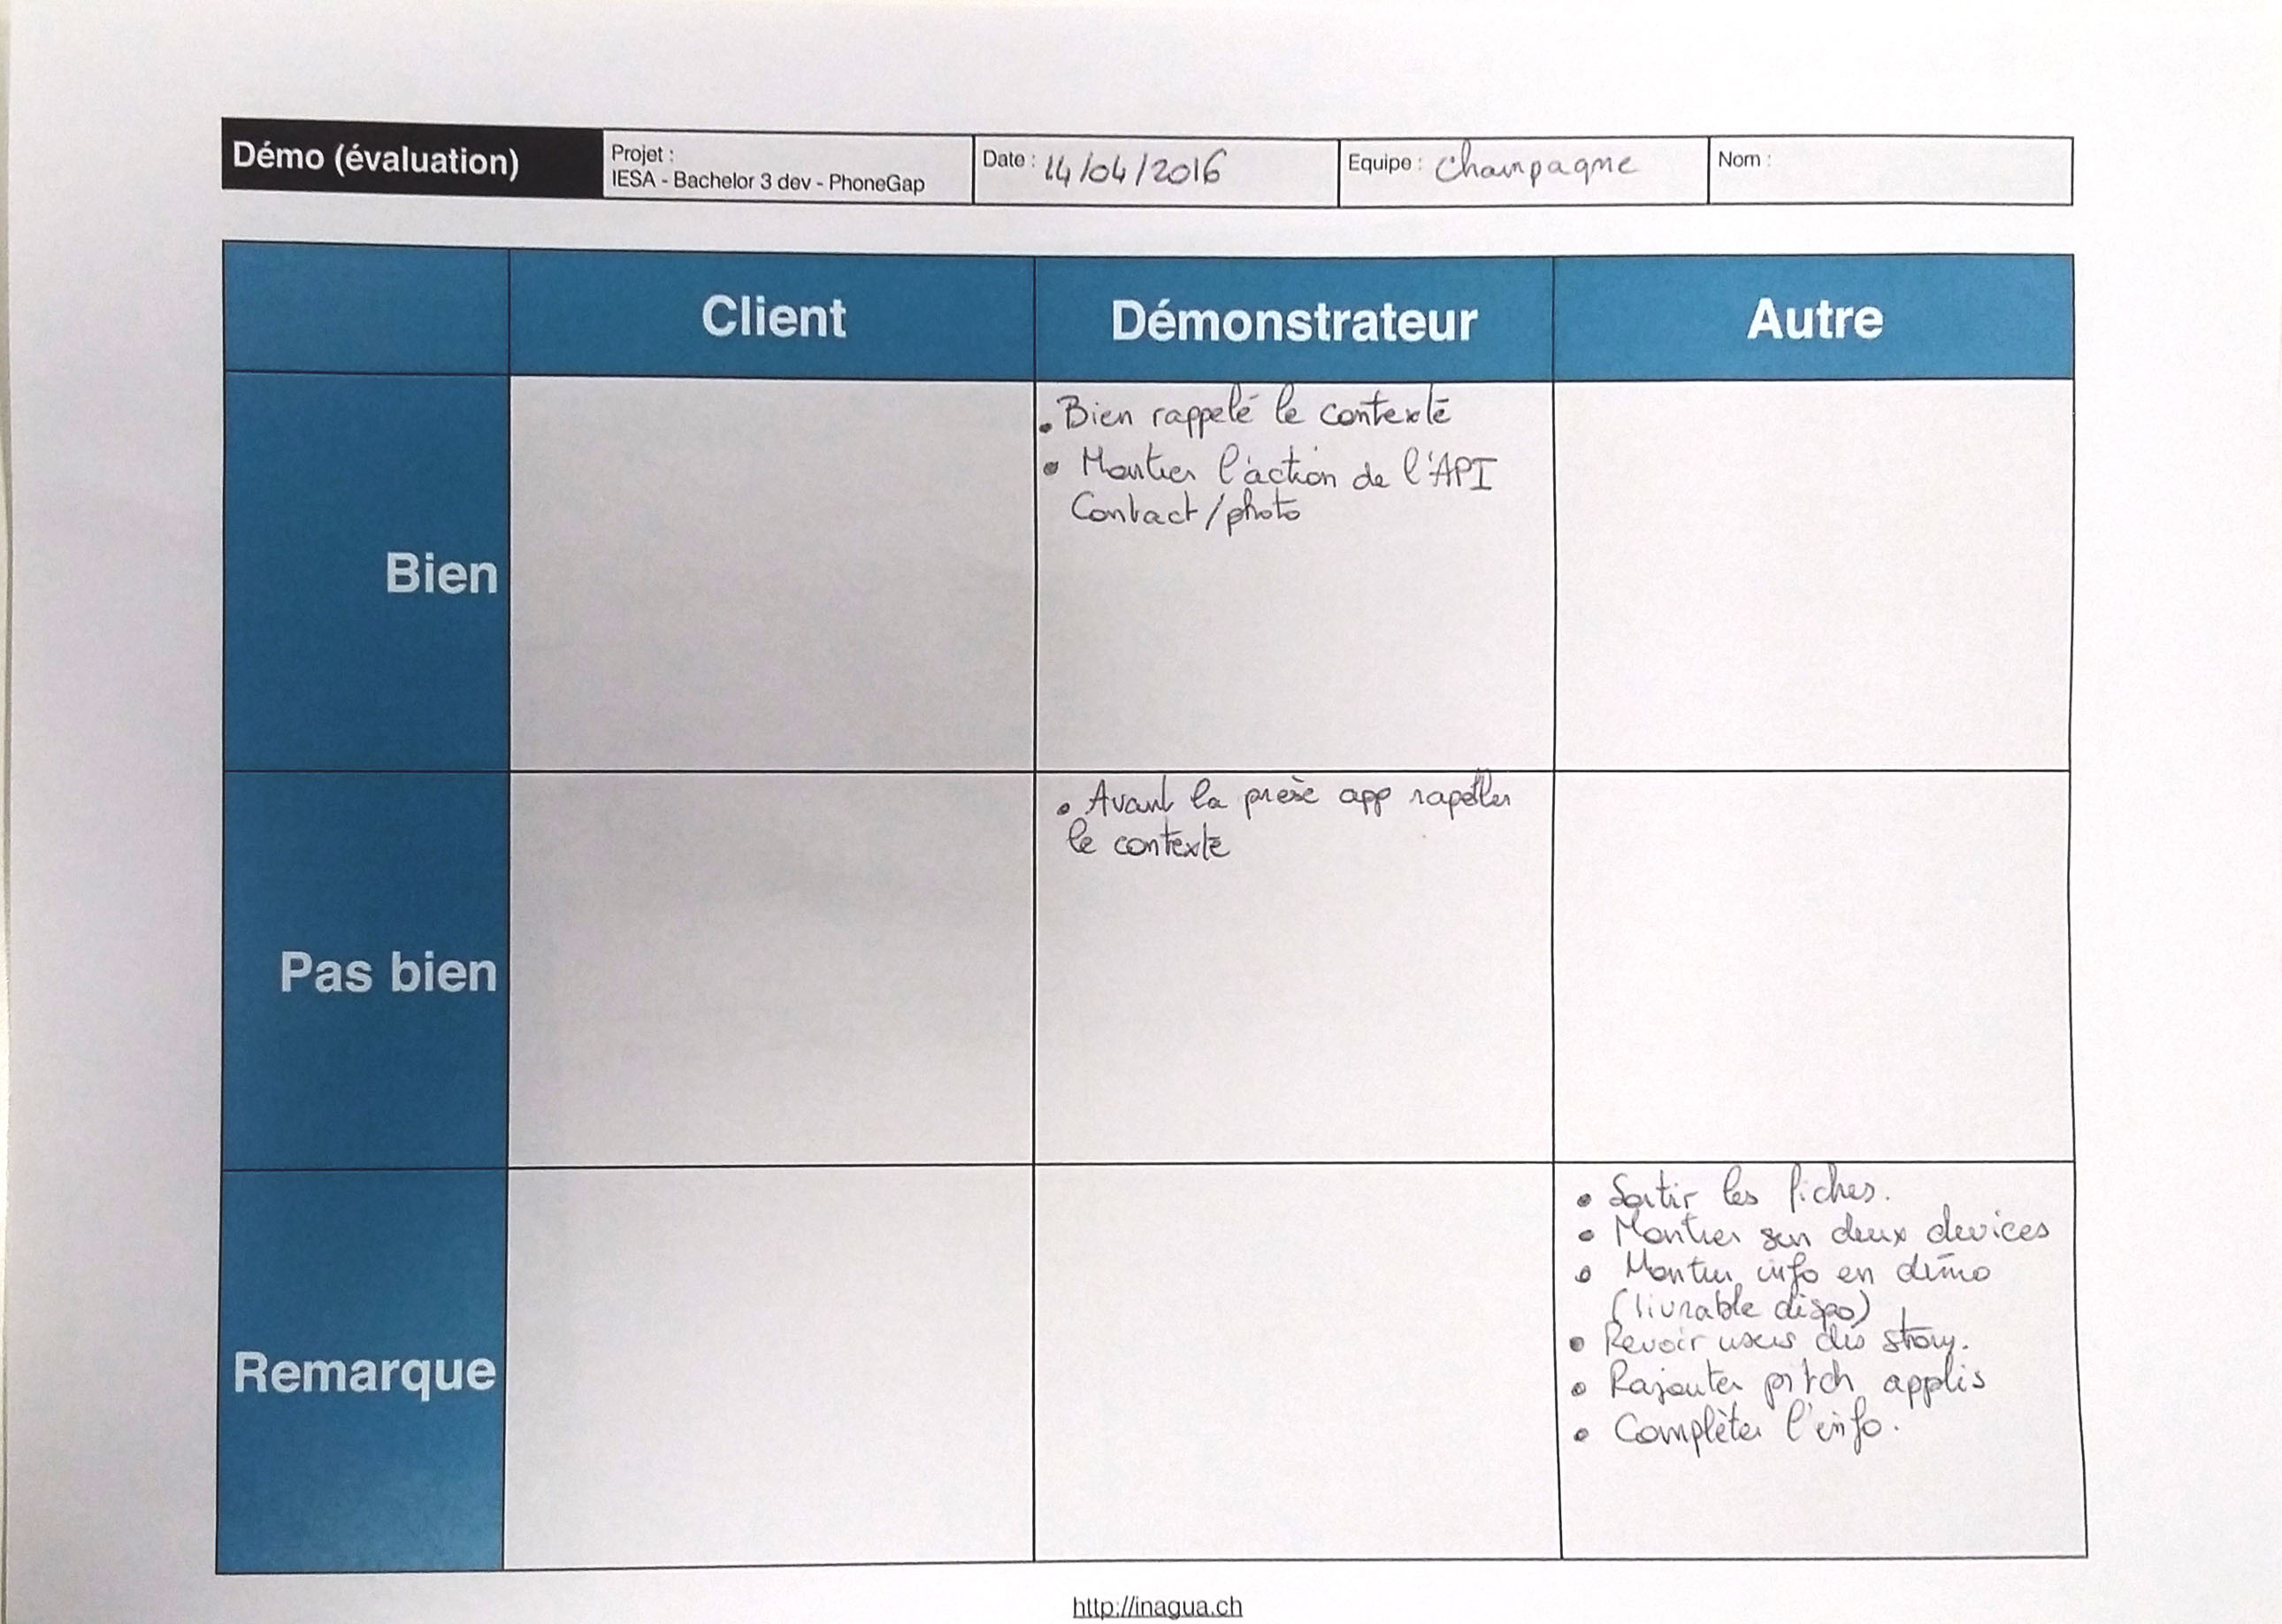 Démo (évaluation)
Projet :
IESA - Bachelor 3 dev - PhoneGap
Date : 14/04/2016
Equipe : Champagne
Nom :
Client
Démonstrateur
Autre
Bien
• Bien rappelé le contexte
• Montrer l'action de l'API
Contact/photo
Pas bien
• Avant la prése app rapeller
le contexte
Remarque
• Sortir les fiches.
• Montrer sur deux devices
• Montrer info en démo
(livrable dispo)
• Revoir users des story.
• Rajouter pitch applis
• Complèter l'info.
http://inagua.ch